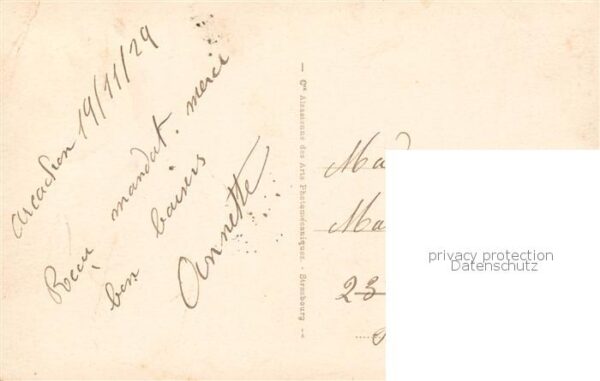 Arcachon 19/11/29
Reçu mandat. merci
bon baisers
Annette
— Cie Alsacienne des Arts Photomécaniques - Strasbourg —
Mad
Ma
23
privacy protection
Datenschutz